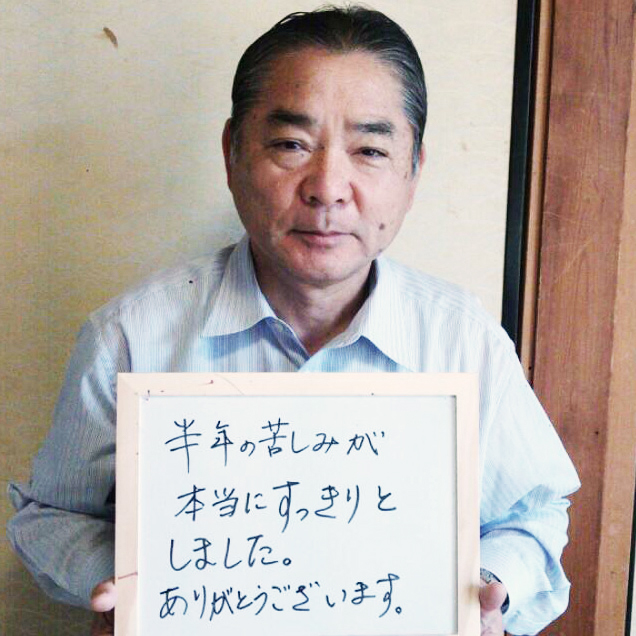 半年の苦しみが
本当にすっきりと
しました。
ありがとうございます。